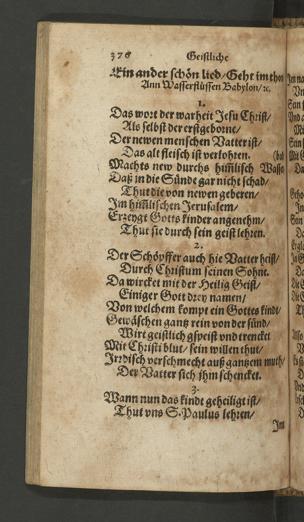 376 Geistliche
Ein ander schön lied/ Geht im thon
Ann Wasserflüssen Babylon/ ꝛc.
1.
Das wort der warheit Jesu Christ/
Als selbst der erstgeborne/
Der newen menschen Vatter ist/
Das alt fleisch ist verlohren.
Machts new durchs himlisch Wasser
Daß in die Sünde gar nicht schad/
Thut die von newen geberen/
Im himlischen Jerusalem/
Erzeygt Gotts kinder angenehm/
Thut sie durch sein geist lehren.
2.
Der Schöpffer auch hie Vatter heist/
Durch Christum seinen Sohne.
Da wircket mit der Heilig Geist/
Einiger Gott drey namen/
Von welchem kompt ein Gottes kindt/
Gewäschen gantz rein von der sünd/
Wirt geistlich gspeist vnd trencket
Mit Christi blut/ sein willen thut/
Irrdisch verschmecht auß gantzem muth/
Der Vatter sich jhm schencket.
3.
Wann nun das kindt geheiligt ist/
Thut vns S. Paulus lehren/
Im